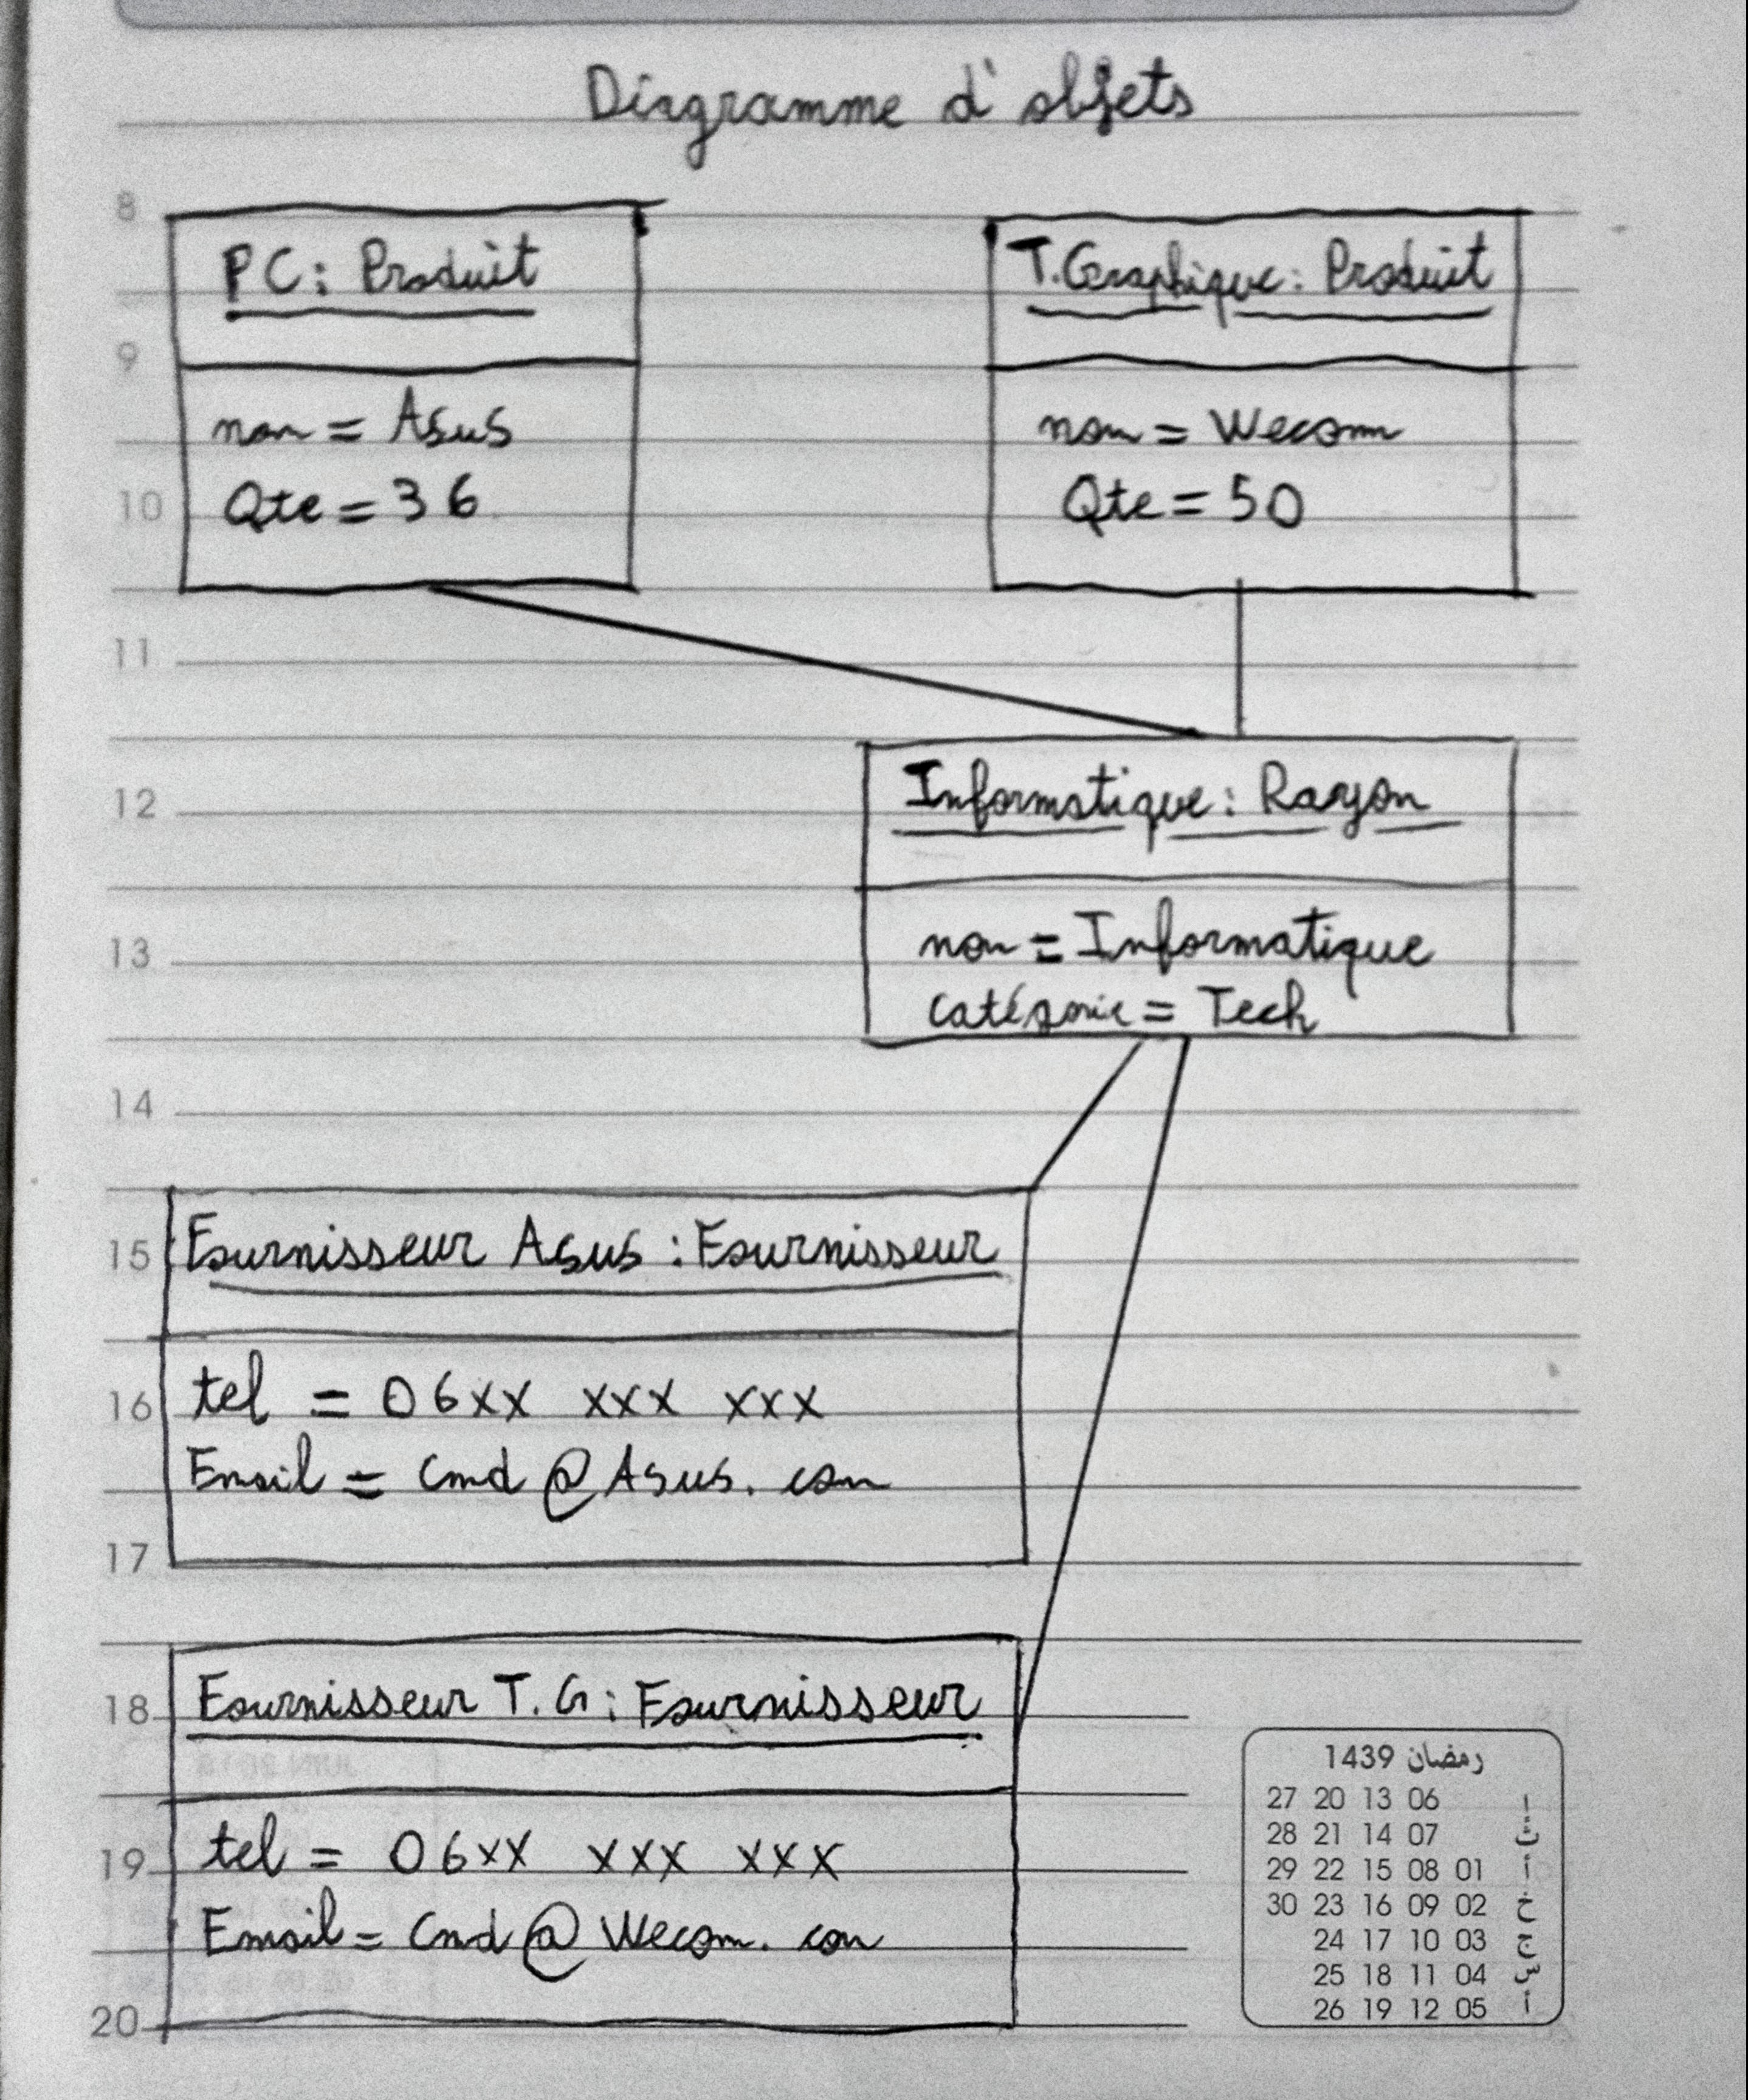 Diagramme d'objets
8
PC : Produit
T.Graphique : Produit
9
nom = Asus
nom = Wecom
10
Qte = 36
Qte = 50
11
12
Informatique : Rayon
13
nom = Informatique
catégorie = Tech
14
15
Fournisseur Asus : Fournisseur
16
tel = 06xx xxx xxx
Email = Cmd @ Asus. com
17
18
Fournisseur T. G : Fournisseur
19
tel = 06xx xxx xxx
Email = Cmd @ Wecom. com
20
رمضان 1439
27 20 13 06 إ
28 21 14 07 ث
29 22 15 08 01 أ
30 23 16 09 02 خ
24 17 10 03 ج
25 18 11 04 س
26 19 12 05 أ